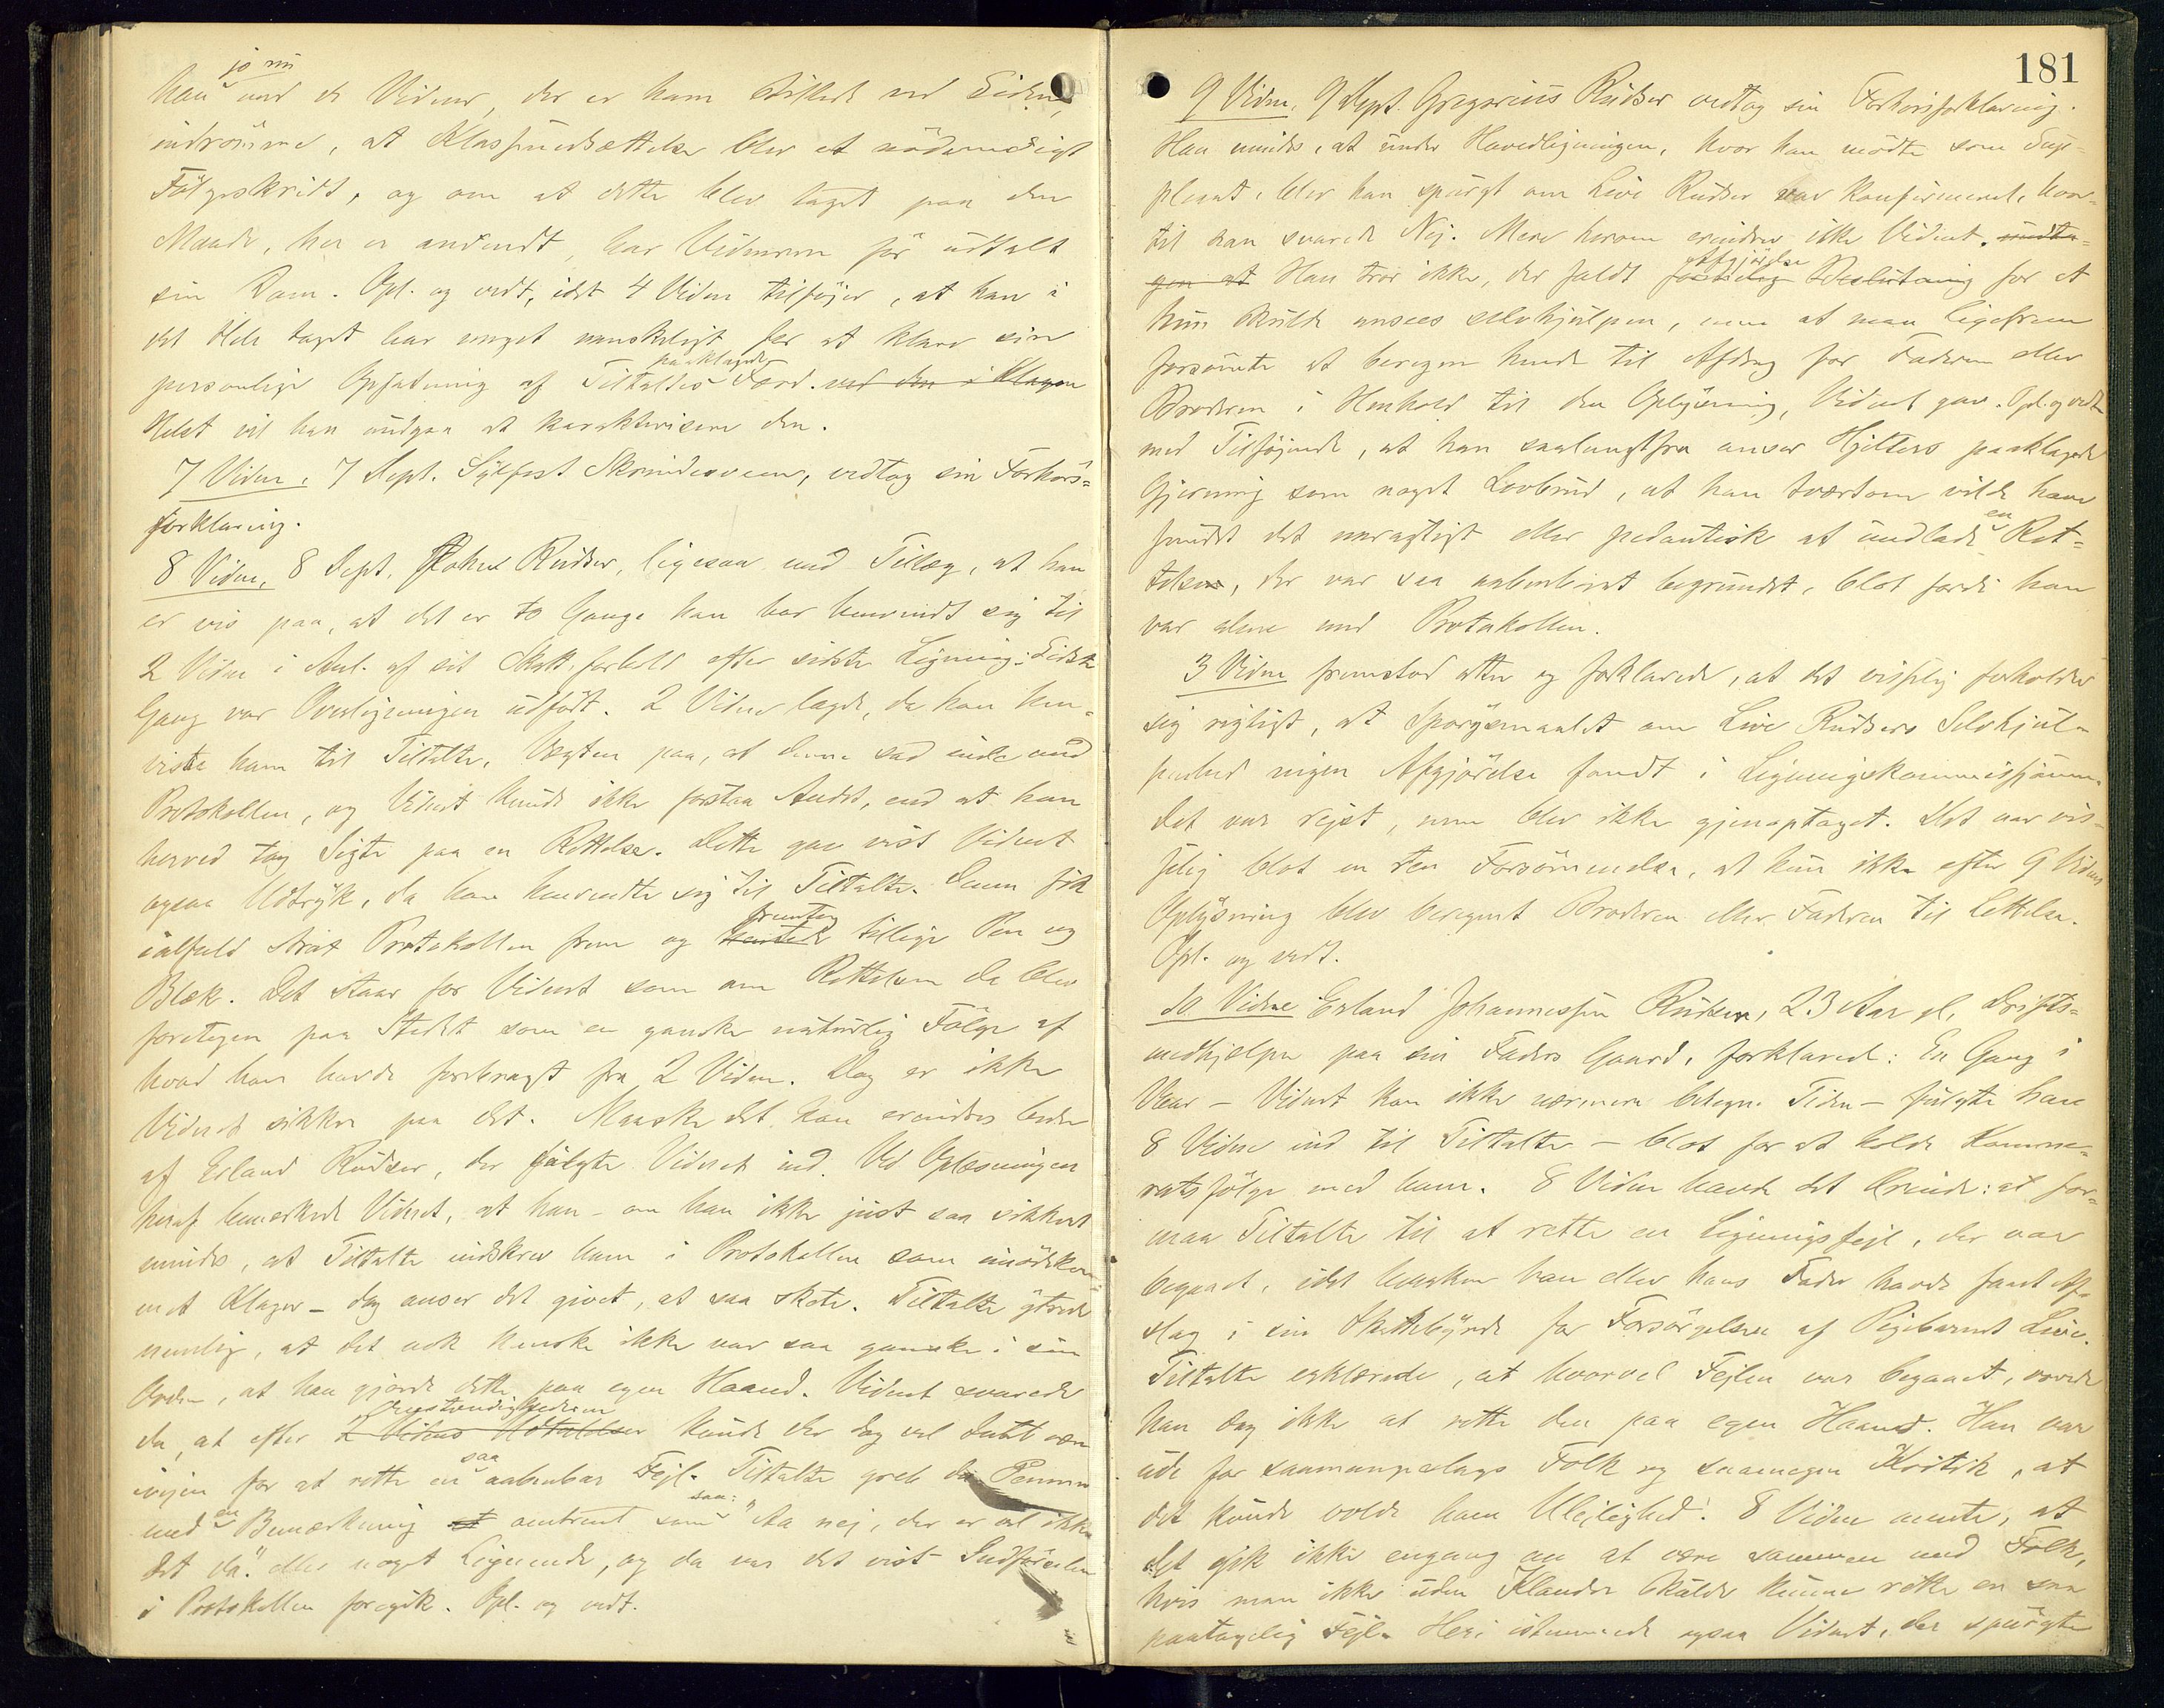 jo nu
han med de Vidner, der er ham stillede ved Siden,
indrømme, at Klassenedsættelse blev et nødvendigt
Følgeskridt, og om at dette blev taget paa den
Maade, her er anvendt, har Vidnerne før udtalt
sin Dom. Opl. og vedt., idet 4 Vidne tilføjer, at han i
det Hele taget har meget vanskeligt for at klare sin
paaklagede
personlige Opfatning af Tiltaltes Færd. ved den i Klagen
Helst vil han undgaa at karakterisere den.
7 Vidne. 7 Dept. Sylfest Skrindesveen, vedtog sin Forhørs=
forklaring.
8 Vidne, 8 Dept. Rudser, ligesaa med Tillæg, at han
er vis paa, at det er to Gange han har henvendt sig til
2 Vidne i Anl. af sit Skatteforhold efter sidste Ligning. Sidste
Gang var Overligningen udført. 2 Vidne lagde, da han hen-
viste ham til Tiltalte, Vægten paa, at denne sad inde med
Protokollen, og Vidnet kunde ikke forstaa Andet, end at han
herved tog Sigte paa en Rettelse. Dette gav vist Vidnet
ogsaa Udtryk, da han henvendte sig til Tiltalte. Denne fik
fremtog
ialfald strax Protokollen frem og hentede tillige Pen og
Blæk. Det staar for Vidnet som om Rettelsen da blev
foretagen paa Stedet som en ganske naturlig Følge af
hvad han havde forebragt fra 2 Vidne. Dog er ikke
Vidnet sikker paa det. Maaske det kan erindres bedre
af Erland Rudser, der fulgte Vidnet ind. Ved Oplæsningen
heraf bemærkede Vidnet, at han – om han ikke just saa sikkert
mindes, at Tiltalte indskrev ham i Protokollen som imødekom-
met Klager – dog anser det givet, at saa skete. Tiltalte ytrede
nemlig, at det nok kanske ikke var saa ganske i sin
Orden, at han gjorde dette paa egen Haand. Vidnet svarede
Omstændighederne
da, at efter 2 Vidnes Udtalelser kunde der dog vel Intet være
saa
ivejen for at rette en aabenbar Fejl. Tiltalte greb da Pennen
en saa:
med Bemærkning et omtrent som "Aa nej, der er vel ikke
det da." eller noget Lignende, og da var det vist Indførelsen
i Protokollen foregik. Opl. og vedt.
181
9 Vidne. 9 Dept. Gregorius Rudser vedtog sin Forhørsforklaring.
Han mindes, at under Hovedligningen, hvor han mødte som Sup-
pleant, blev han spurgt om Live Rudser var konfirmeret, hvor-
til han svarede Nej. Mere herom erindrer ikke Vidnet. undta-
Afgjørelse
gen at Han tror ikke, der faldt Beslutning for at
hun skulde ansees selvhjulpen, men at man ligefrem
forsømte at beregne hende til Afdrag for Faderen eller
Broderen i Henhold til den Oplysning, Vidnet gav. Opl. og vedt.
med Tilføjende, at han saalangtfra anser Hjeltens paaklagede
Gjerning som noget Lovbrud, at han tværtom vilde have
en
fundet det unragtigt eller pedantisk at undlade Ret-
telsen, der var saa aabenbart begrundet, blot fordi han
var alene med Protokollen.
3 Vidne fremstod atter og forklarede, at det visselig forholder
sig rigtigt, at Spørgsmaalet om Live Rudsers Selvhjul-
penhed ingen Afgjørelse fandt i Ligningskommissjonen.
Det var rejst, men blev ikke gjenoptaget. Det var vis-
selig blot en ren Forsømmelse, at hun ikke efter 9 Vidnes
Oplysning blev beregnet Broderen eller Faderen til Lettelse.
Opl. og vedt.
10 Vidne Erland Johannessen Rudser, 23 Aar gl, Drifts-
medhjelper paa sin Faders Gaard, forklarede: En Gang i
Vaar – Vidnet kan ikke nærmere betegne Tiden – fulgte han
8 Vidne ind til Tiltalte – blot for at holde Kamme-
ratsfølge med ham. 8 Vidne havde det Ærinde: at for-
maa Tiltalte til at rette en Ligningsfejl, der var
begaaet, idet hverken han eller hans Fader havde faaet Af-
slag i sin Skattebyrde for Forsørgelsen af Pigebarnet Live.
Tiltalte erklærede, at hvorvel Fejlen var begaaet, vovede
han dog ikke at rette den paa egen Haand. Han var
ude for saamangeslags Folk og saamegen Kritik, at
det kunde volde ham Ulejlighed! 8 Vidne mente, at
det gik ikke engang an at være sammen med Folk,
hvis man ikke uden Klander skulde kunne rette en saa
paatagelig Fejl. Heri istemmede ogsaa Vidnet, der spurgte